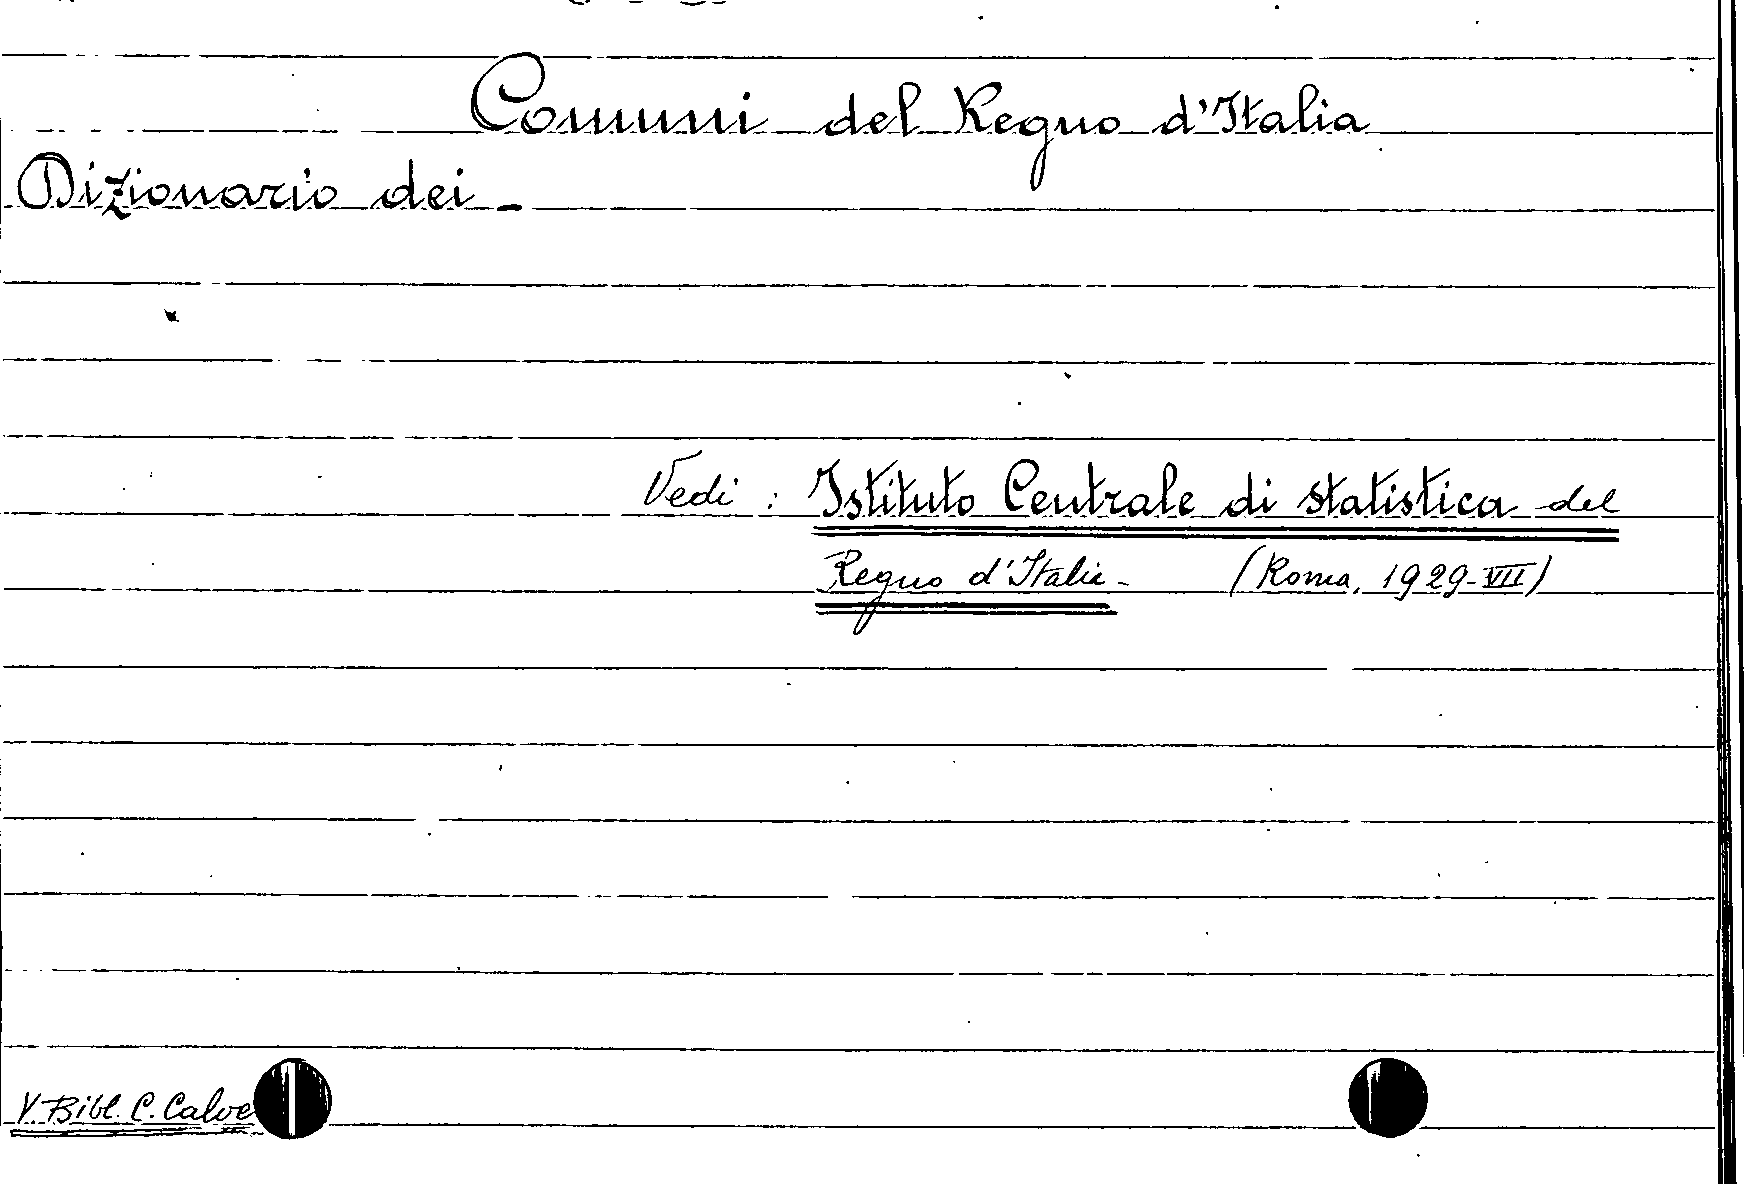 Comuni del Regno d'Italia
Dizionario dei -
Vedi : Istituto Centrale di statistica del
Regno d'Italia - (Roma, 1929-VII)
V. Bibl. C. Calve